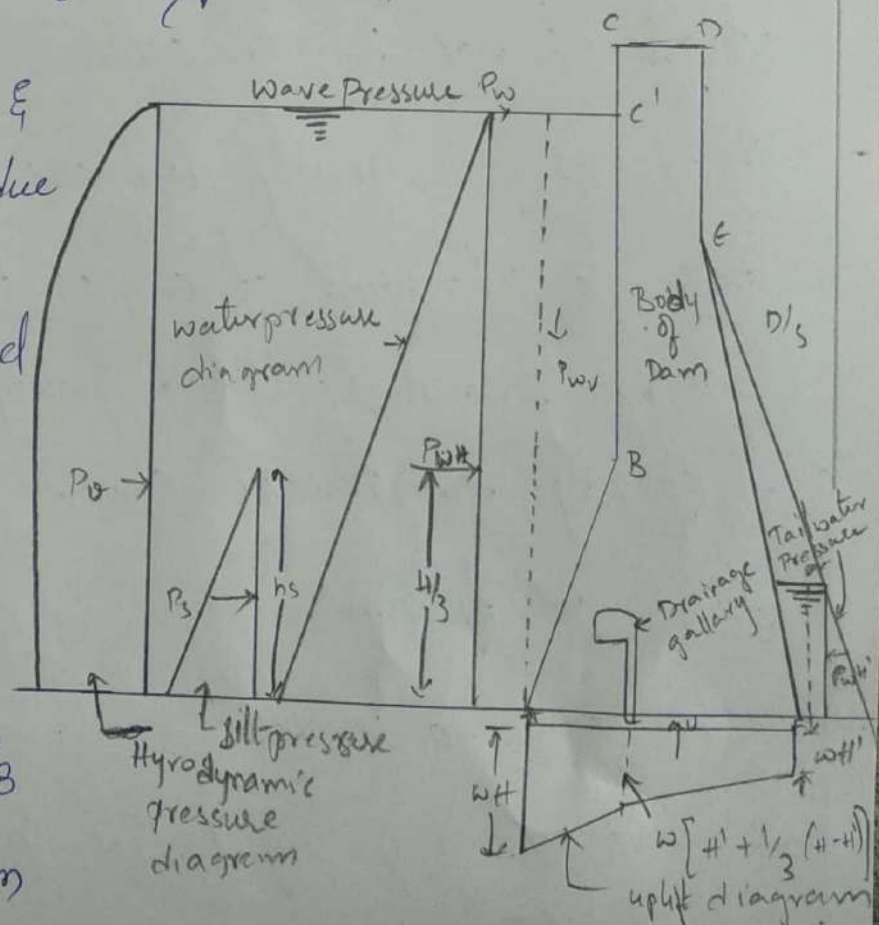 &
due
d
C D
Wave Pressure Pw
C'
E
water pressure
diagram
Body
of
Dam
D/s
Pwv
PwH
B
Pv
Ps
hs
H/3
Tail water
Pressure
Drainage
gallary
PwH'
U
silt pressure
Hyrodynamic
pressure
diagram
wH
wH'
w[H' + 1/3 (H-H')]
uplift diagram
B